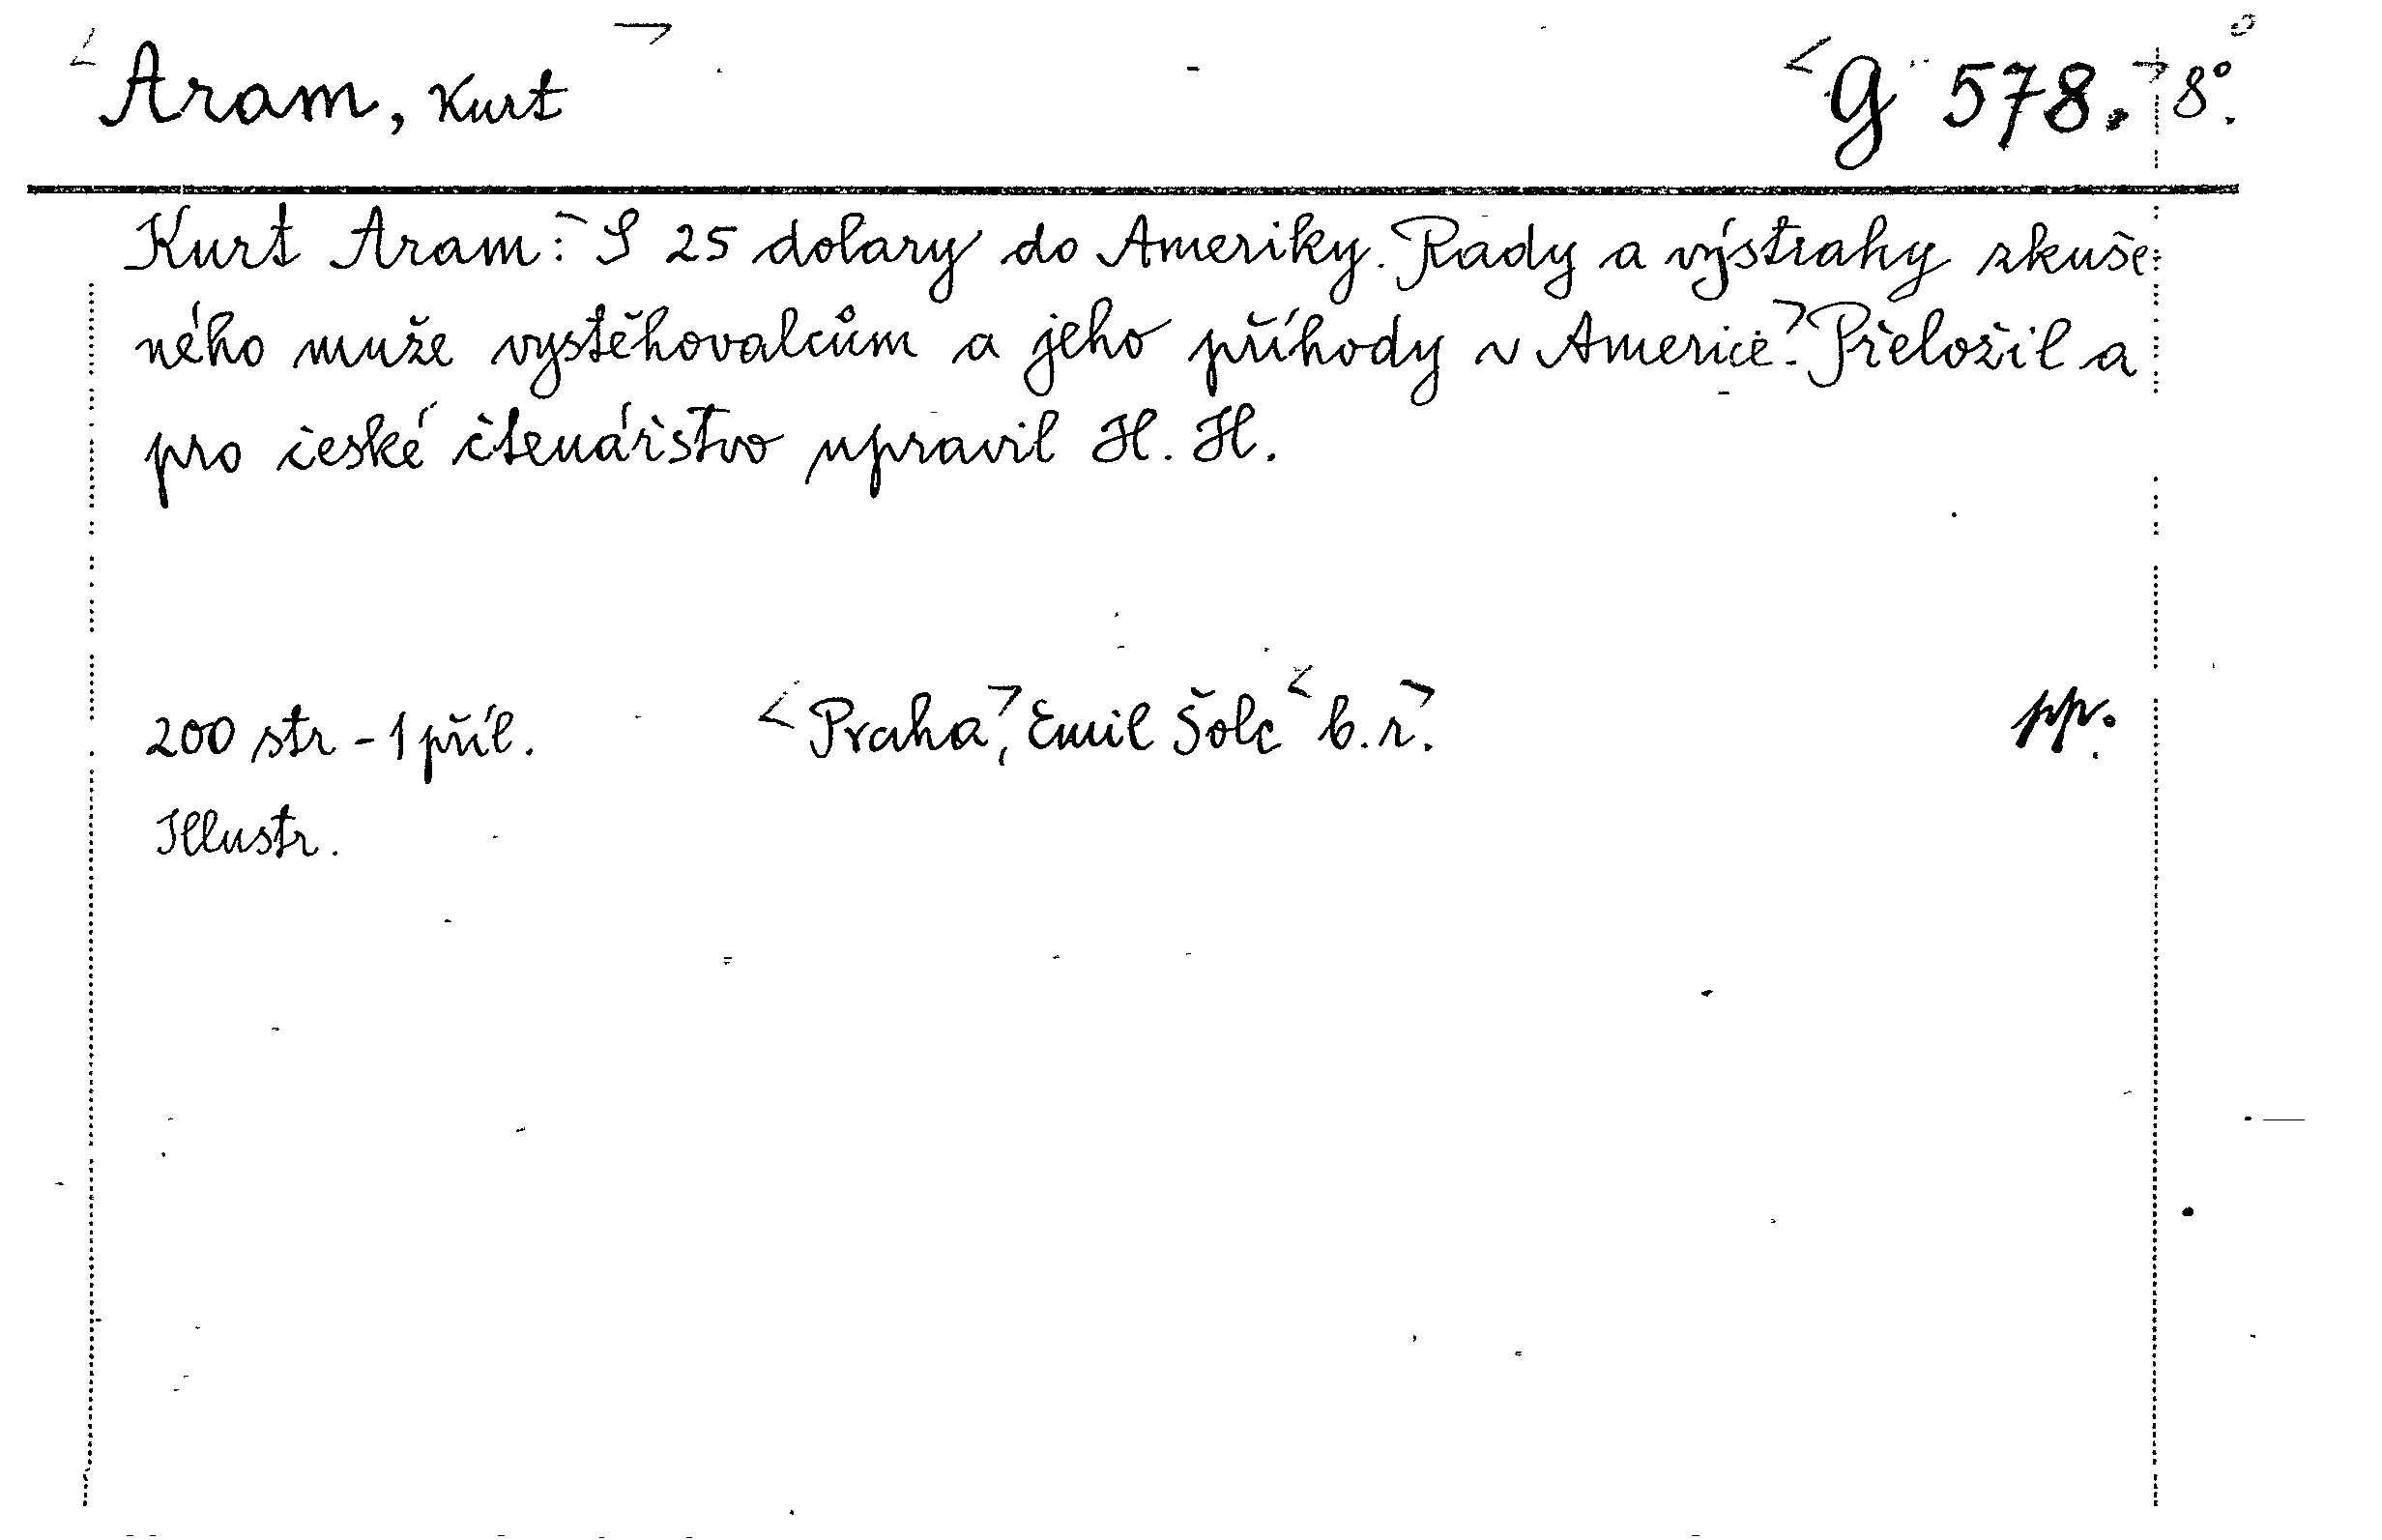 Aram, Kurt
G 578. 8°.
Kurt Aram: S 25 dolary do Ameriky. Rady a výstrahy zkuše-
ného muže vystěhovalcům a jeho příhody v Americe. Přeložil a
pro české čtenářstvo upravil H. H.
200 str - 1 příl. Praha, Emil Šolc b. r. pp.
Illustr.